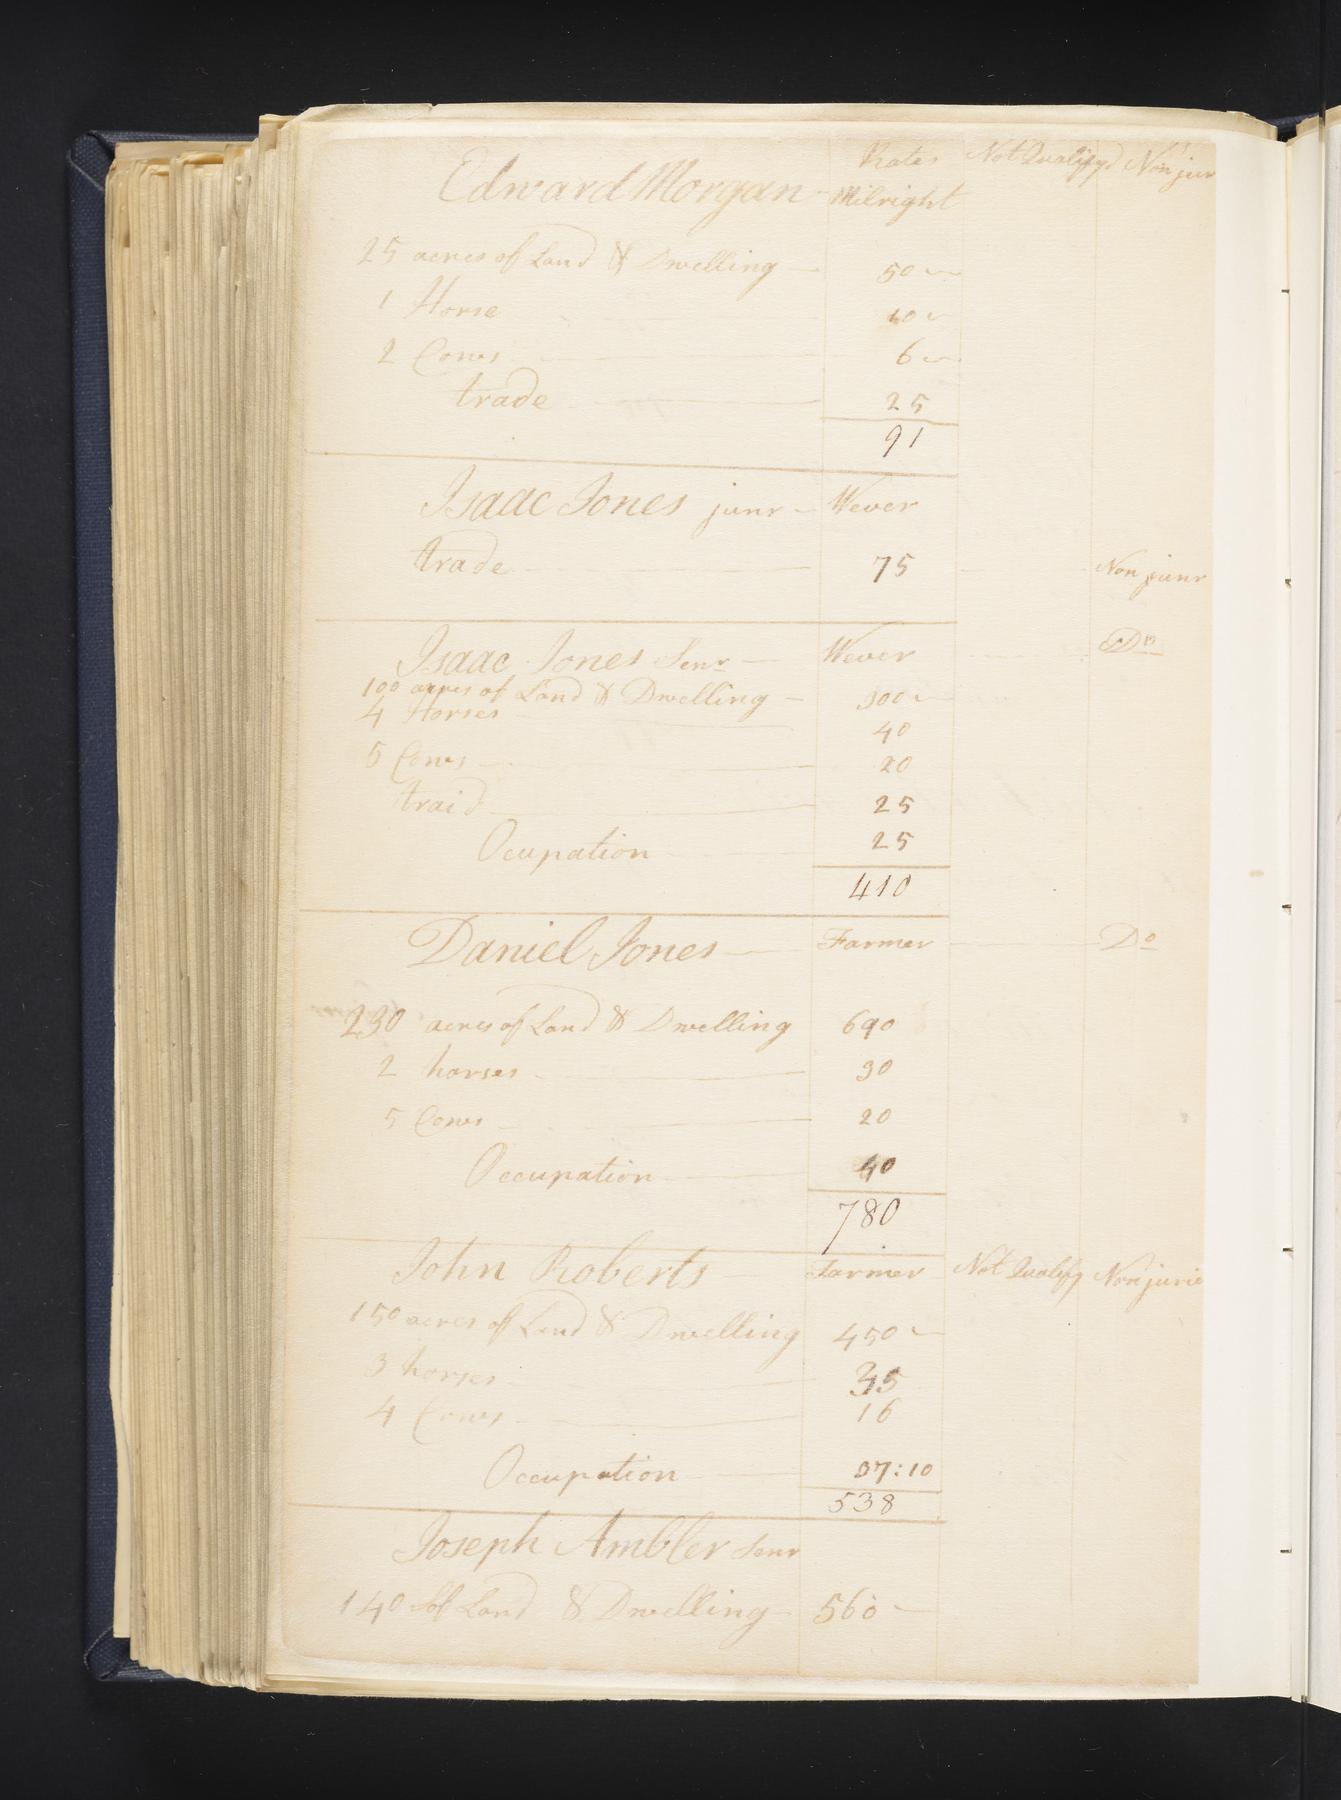 Rates Not Qualifyd Non jur
Edward Morgan - Milright
25 acres of Land & Dwelling 50
1 Horse 10
2 Cows 6
trade 25
91
Isaac Jones junr - Wever
trade 75 Non junr
Isaac Jones Senr Wever Do
100 acres of Land & Dwelling 300
4 Horses 40
5 Cows 20
traid 25
Ocupation 25
410
Daniel Jones Farmer Do
230 acres of Land & Dwelling 690
2 horses 30
5 Cows 20
Occupation 40
780
John Roberts Farmer Not Qualify Non jurie
150 acres of Land & Dwelling 450
3 horses 35
4 Cows 16
Occupation 37:10
538
Joseph Ambler Senr
140 of Land & Dwelling 560